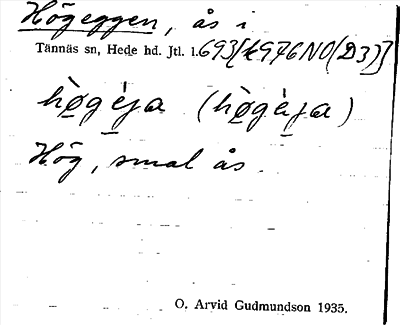 Högeggen, ås i
Tännäs sn, Hede hd. Jtl. l. 693[k976NO(D3)]
hò̱gèja (hò̱gèja)
Hög, smal ås.
O. Arvid Gudmundson 1935.